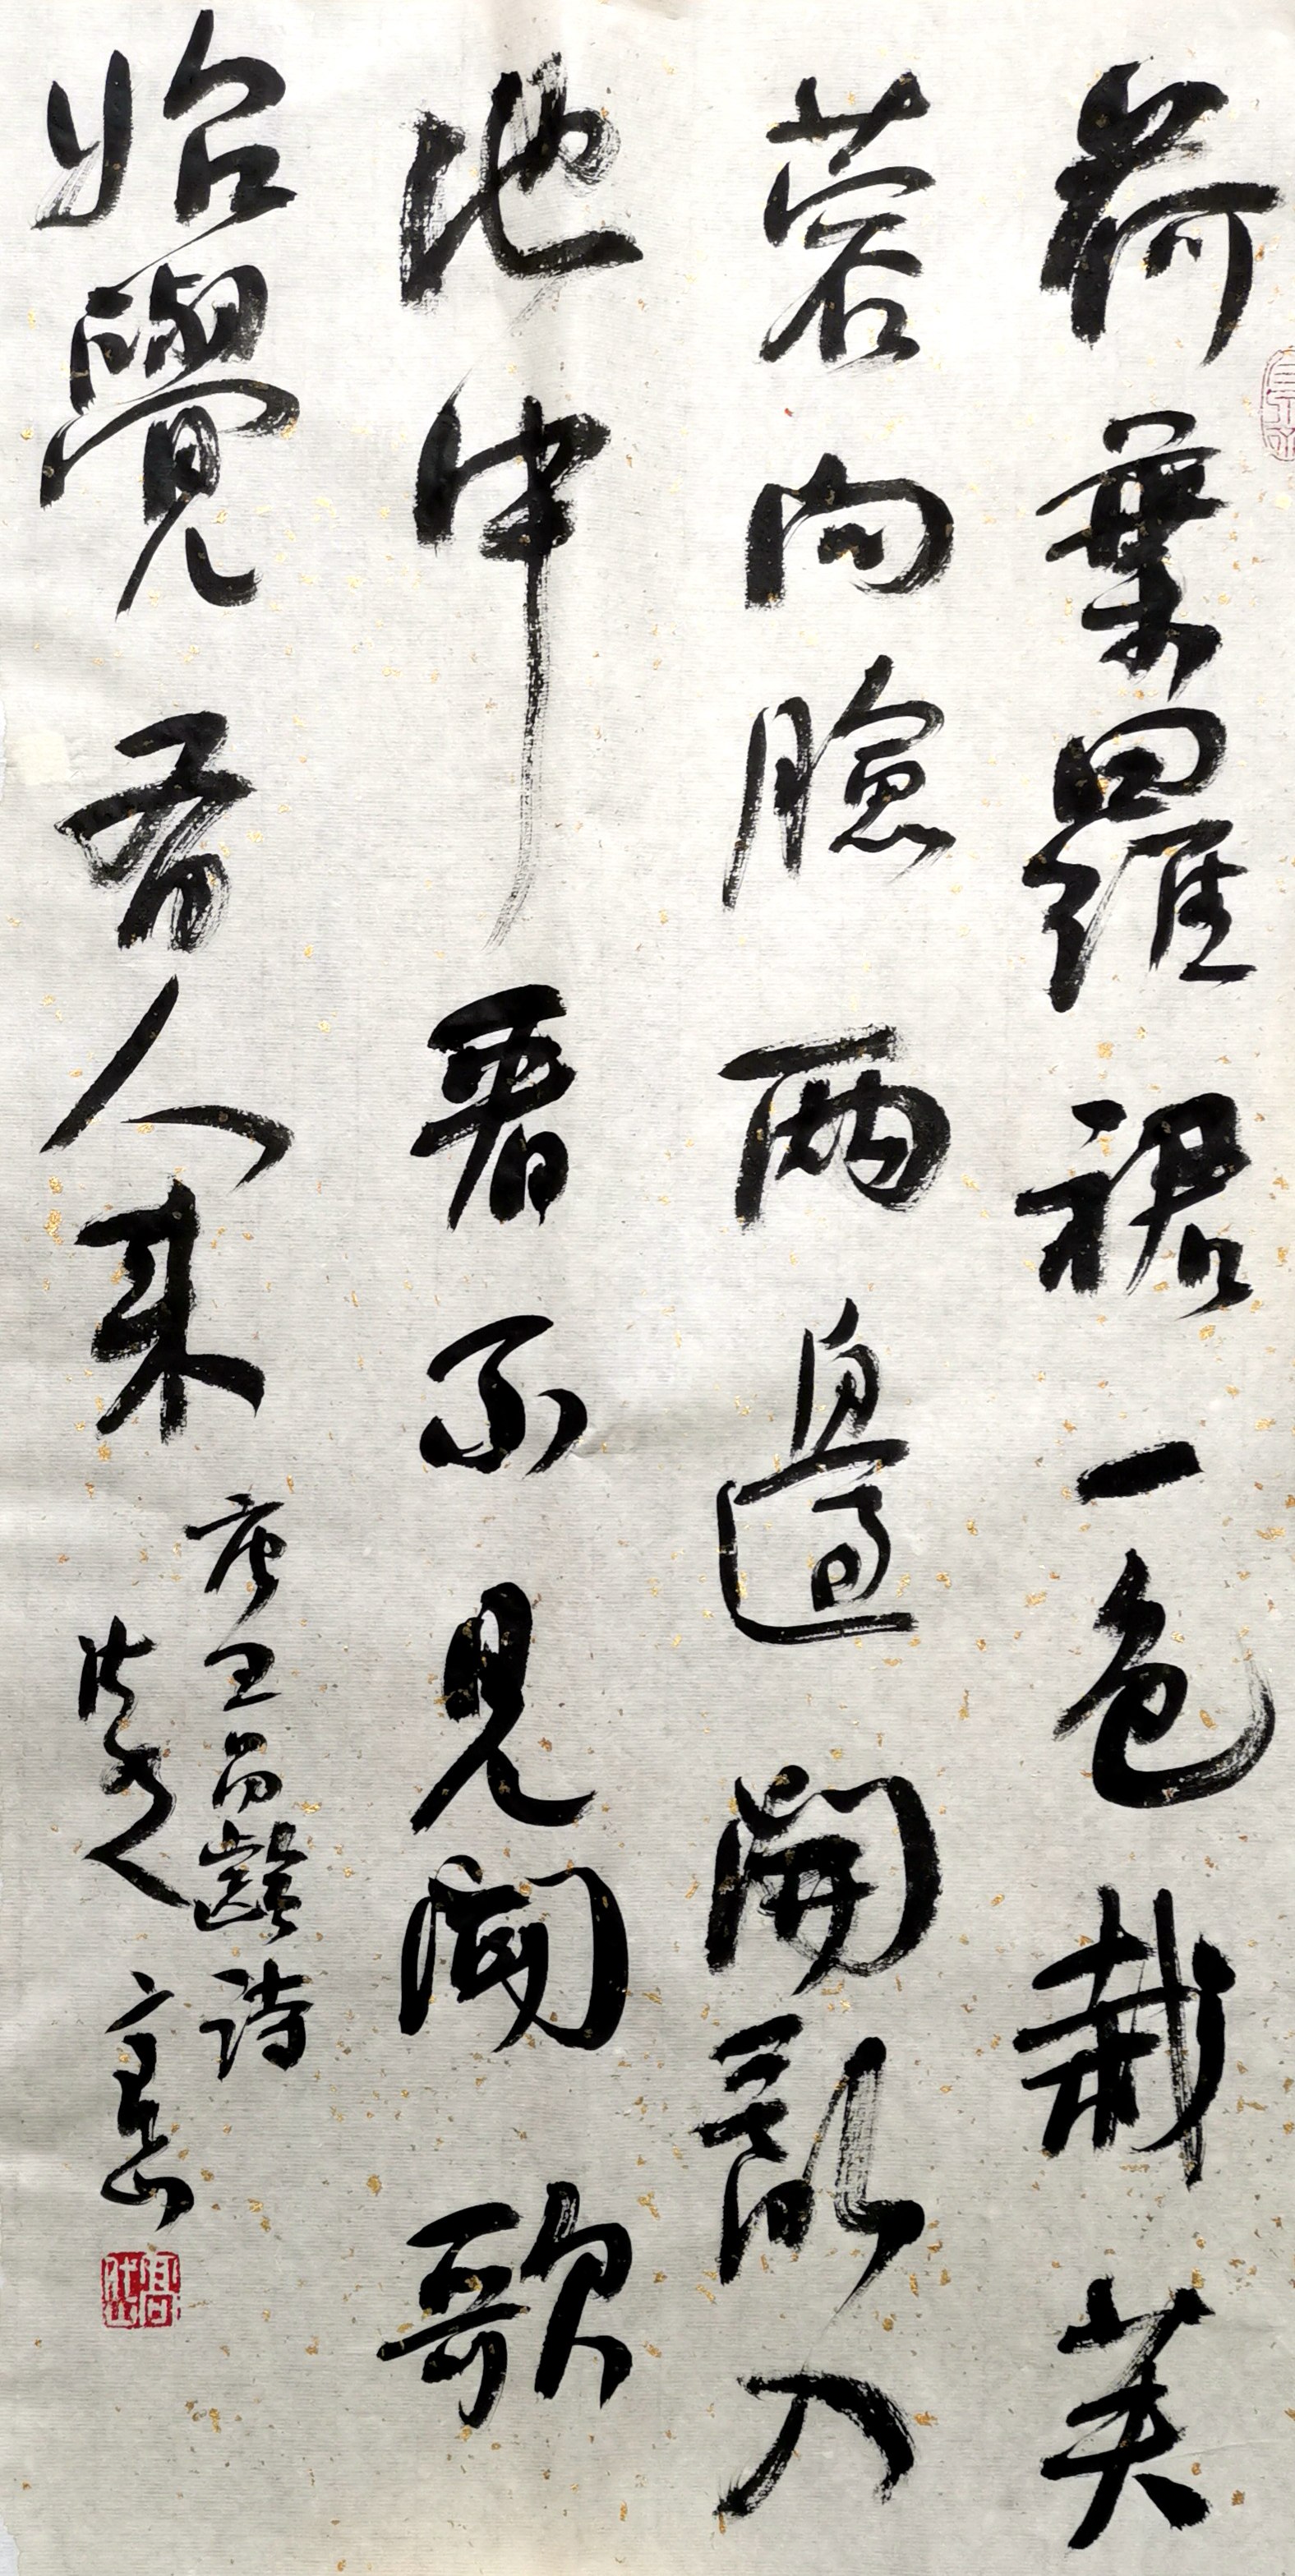 荷葉羅裙一色栽芙
蓉向臉兩邊開亂入
池中看不見聞歌
始覺有人來
唐王昌齡詩